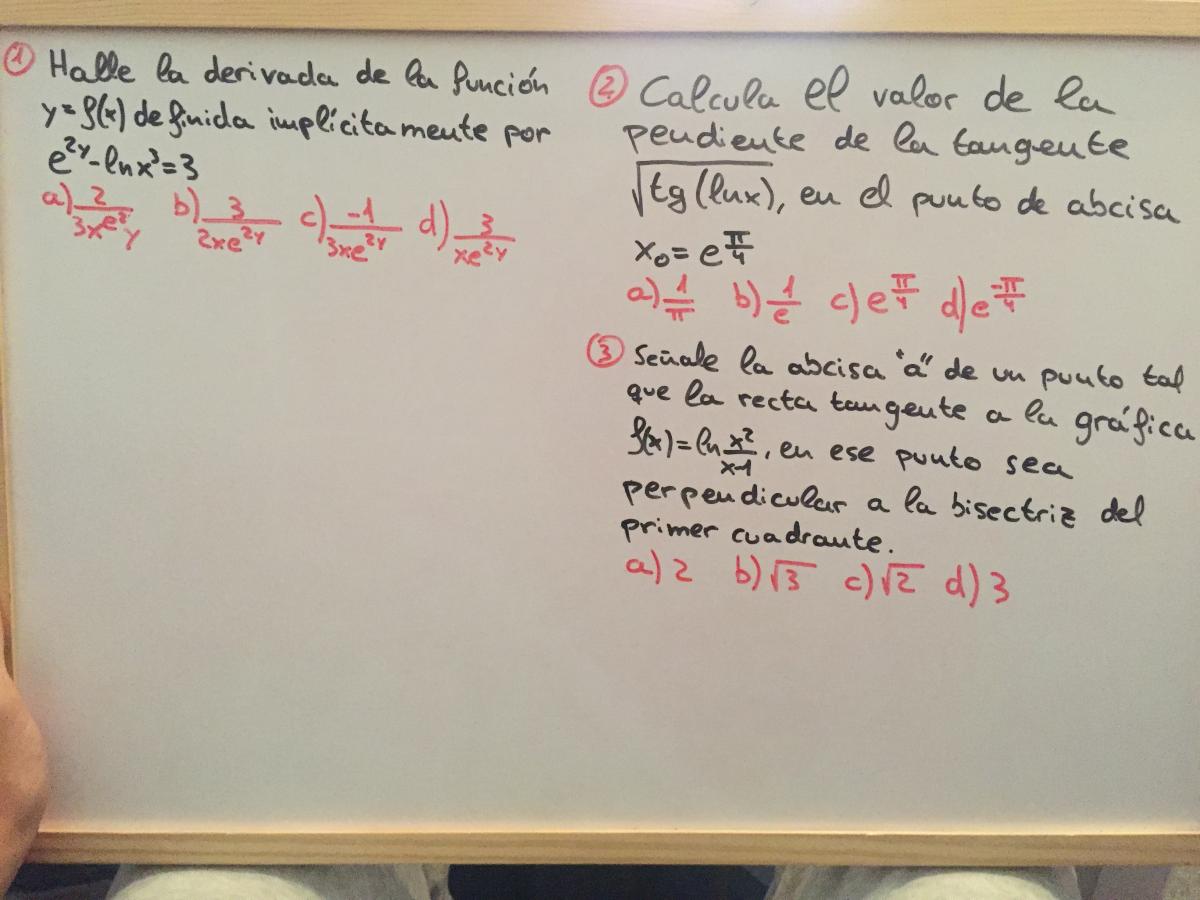 ① Halle la derivada de la función
y=f(x) definida implícitamente por
e^{2y}-lnx^3=3
a) \frac{2}{3xe^{2}y} b) \frac{3}{2xe^{2y}} c) \frac{-1}{3xe^{2y}} d) \frac{3}{xe^{2y}}
② Calcula el valor de la
pendiente de la tangente
\sqrt{tg(lnx)}, en el punto de abcisa
x_0=e^{\frac{π}{4}}
a) \frac{1}{π} b) \frac{1}{e} c) e^{\frac{π}{4}} d) e^{\frac{-π}{4}}
③ Señale la abcisa "a" de un punto tal
que la recta tangente a la gráfica
f(x)=ln\frac{x^2}{x-1}, en ese punto sea
perpendicular a la bisectriz del
primer cuadrante.
a) 2 b) \sqrt{3} c) \sqrt{2} d) 3